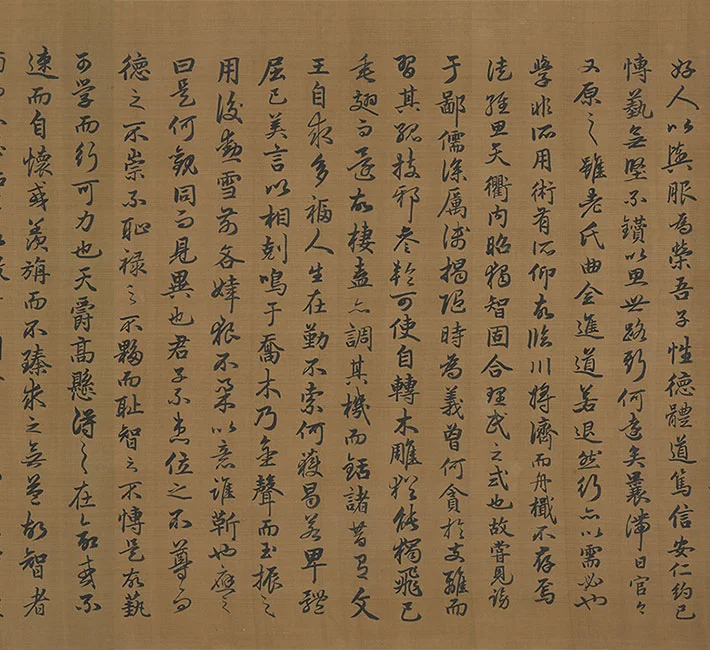 好人以輿服為榮吾子性德體道篤信安仁約己
博藝無堅不鑽以思世路斯何遠矣曩滯日官今
又原之雖老氏曲全進道若退然行亦以需必也
學非所用術有所仰故臨川將濟而舟檝不存焉
徒經思天衢內昭獨智固合理民之式也故嘗見謗
于鄙儒深厲淺揭隨時為義曾何貪於支離而
習其孤技邪參輪可使自轉木雕猶能獨飛已
垂翅而還故棲盍亦調其機而銛諸昔有文
王自求多福人生在勤不索何獲曷若卑體
屈己美言以相剋鳴于喬木乃金聲而玉振之
用後勳雪前吝婞佷不柔以意誰靳也應之
曰是何觀同而見異也君子不患位之不尊而
德之不崇不恥祿之不夥而恥智之不博是故藝
可學而行可力也天爵高懸得之在命或不
速而自懷或羨旃而不臻求之無益故智者